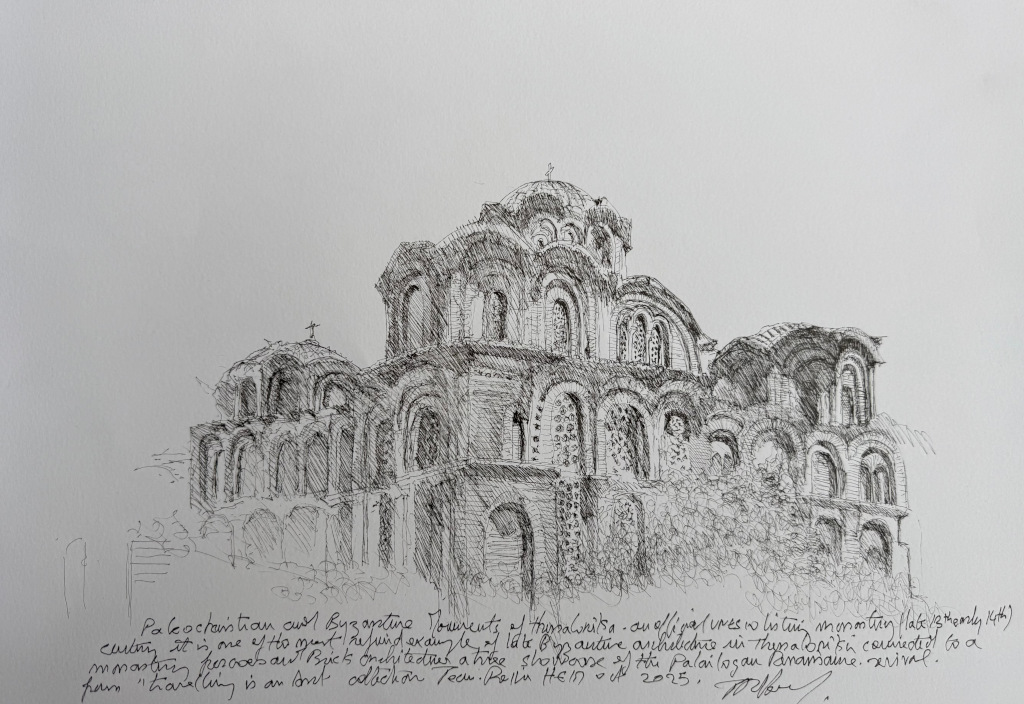 Paleochristian and Byzantine Monuments of Thessaloniki. an official UNESCO listing monastery (late 13th early 14th)
century it is one of the most refined example of late Byzantine architecture in Thessaloniki connected to a
monastery and Brick architecture a true showcase of the Palailogan Renaissance. revival.
from "travelling is an Art collection oct 2025.